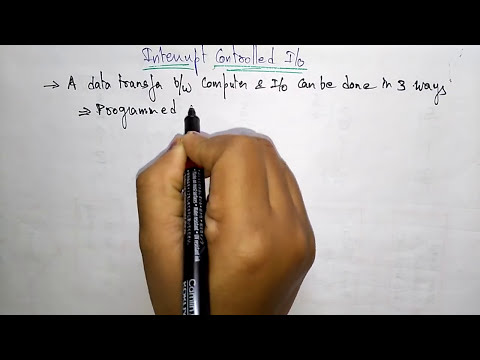 Interrupt Controlled I/o
→ A data transfer b/w Computer & I/o can be done in 3 ways
⇒ Programmed